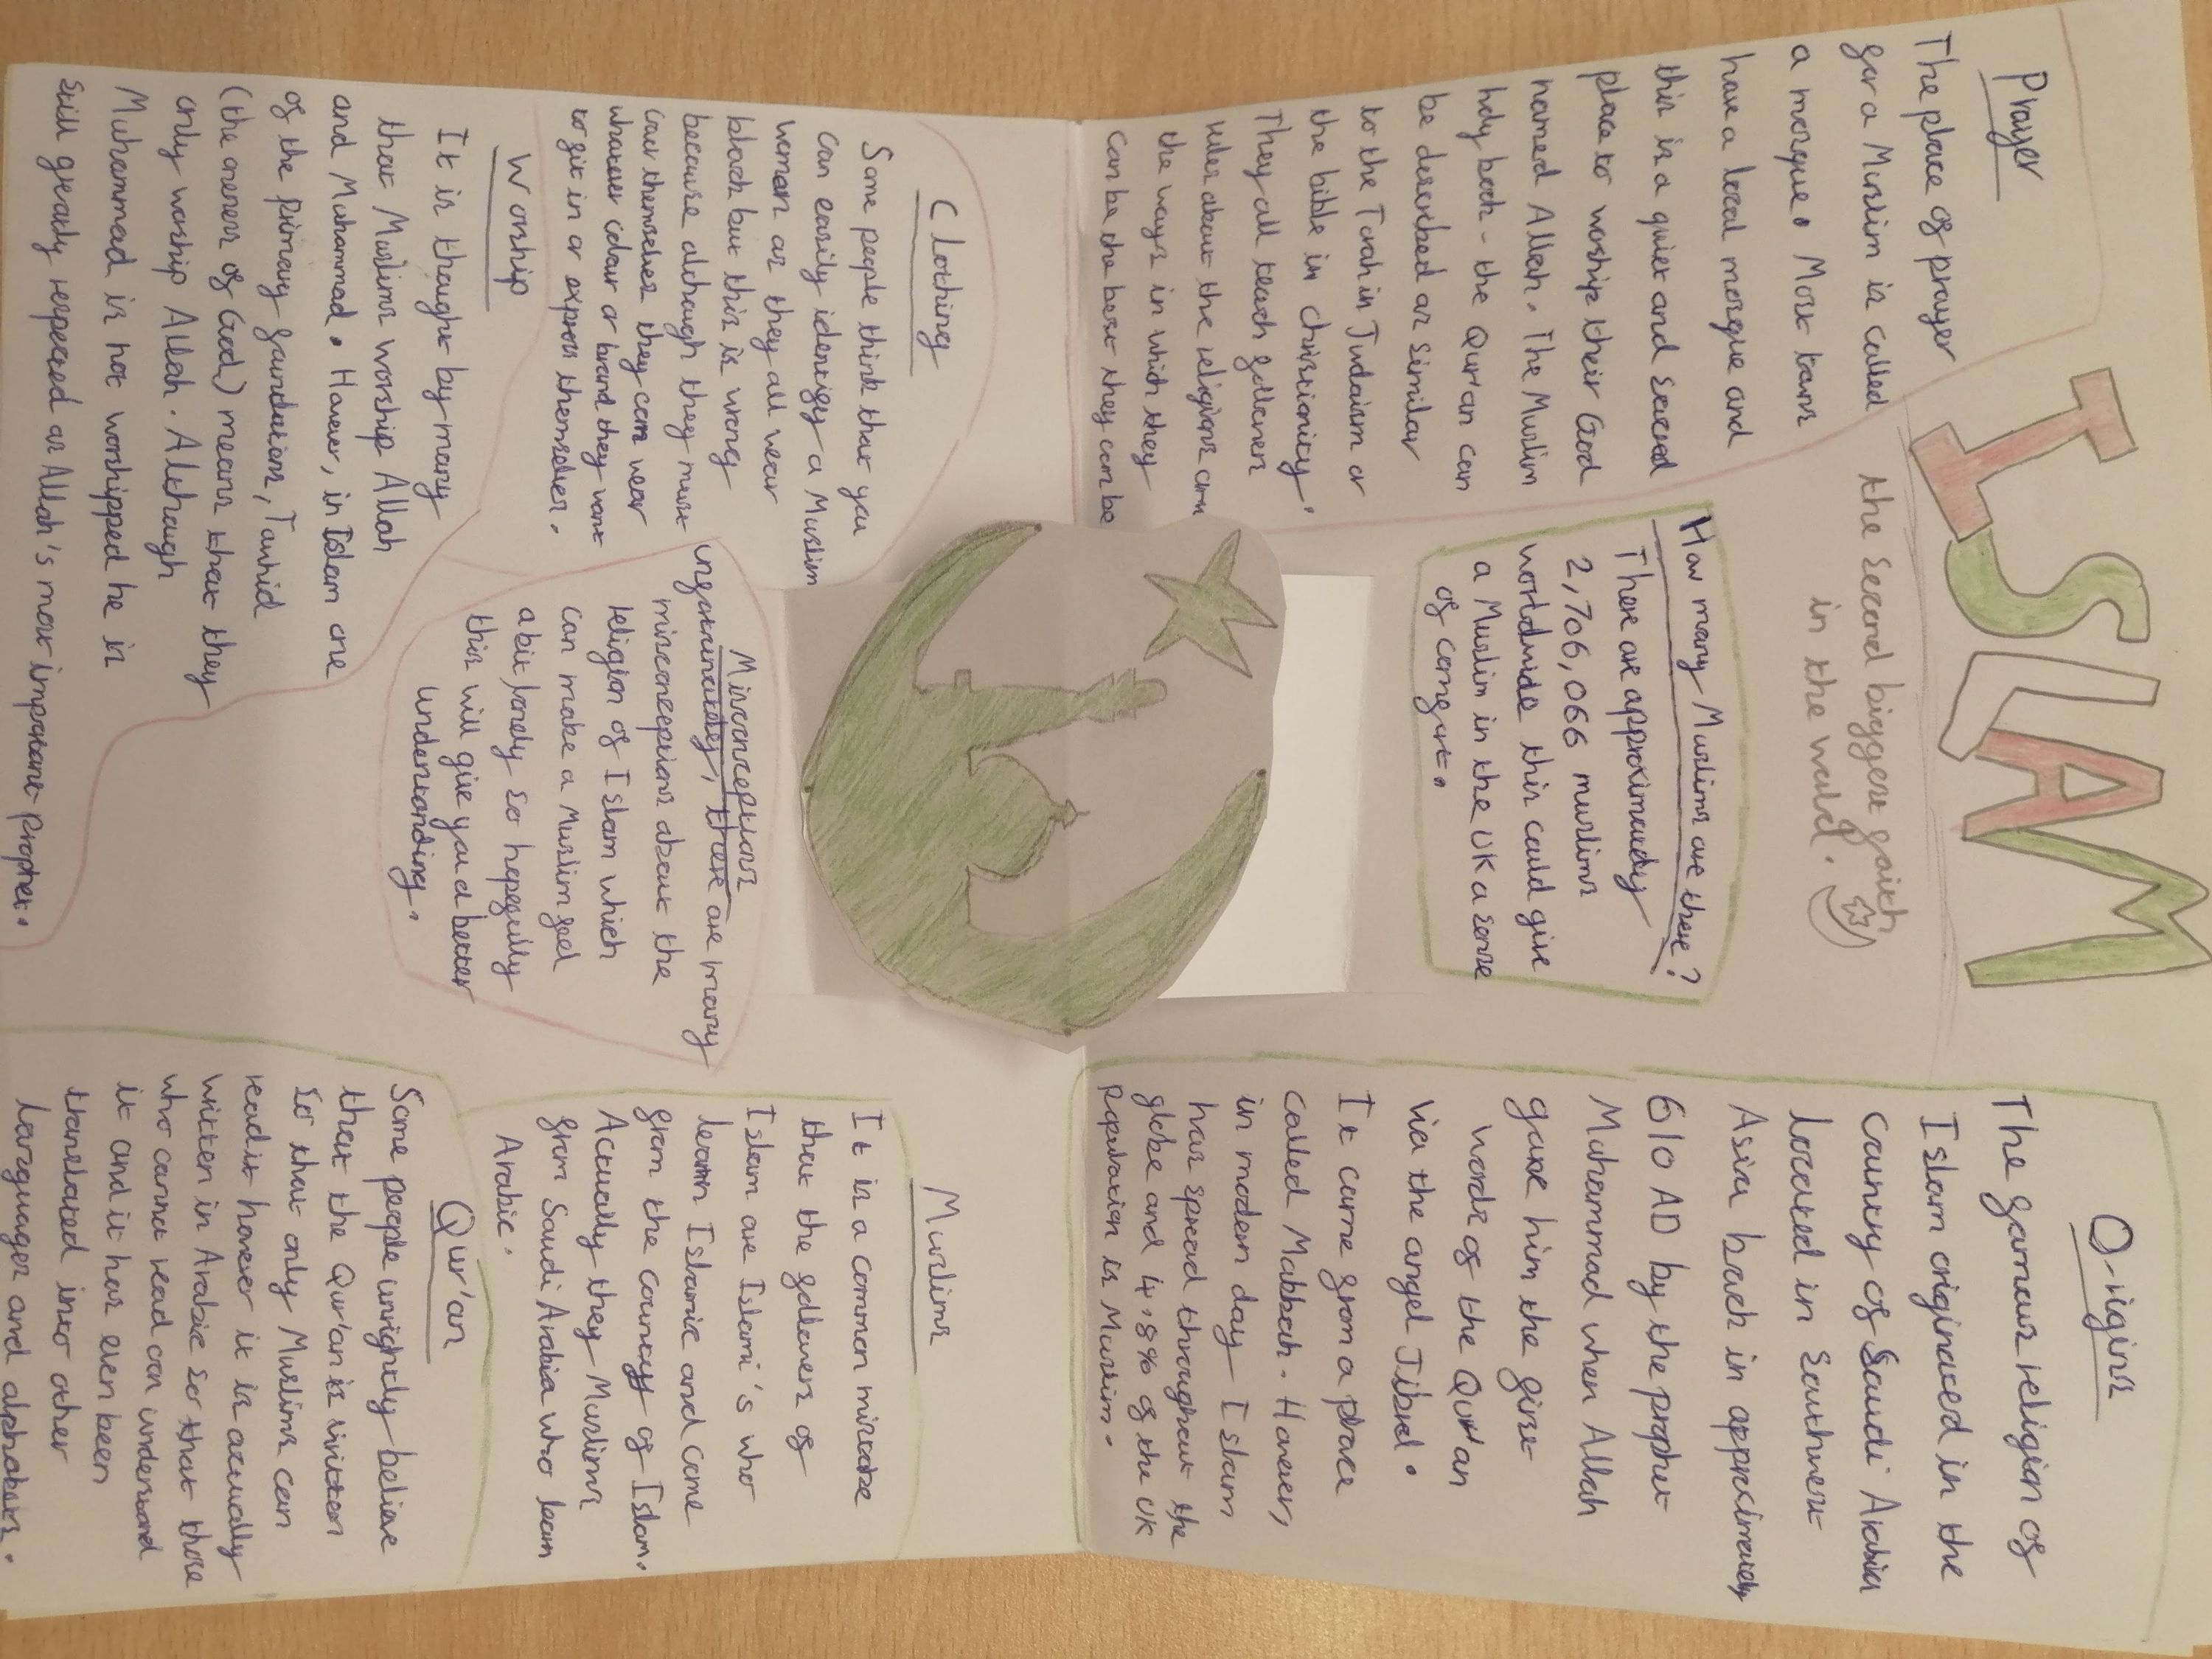 ISLAM
the second biggest faith
in the world.
Prayer
The place of prayer
for a Muslim is called
a mosque. Most towns
have a local mosque and
this is a quiet and sacred
place to worship their God
named Allah. The Muslim
holy book - the Qur'an can
be described as similar
to the Torah in Judaism or
the bible in christianity.
They all teach followers
rules about the religions and
the ways in which they
can be the best they can be
How many Muslims are there?
There are approximately
2,706,066 muslims
worldwide this could give
a Muslim in the UK a sense
of comfort.
Origins
The famous religion of
Islam originated in the
country of Saudi Arabia
located in Southwest
Asia back in approximately
610 AD by the prophet
Muhammad when Allah
gave him the first
words of the Qur'an
via the angel Jibrel.
It came from a place
called Makkah. However,
in modern day Islam
has spread throughout the
globe and 4.8% of the UK
population is Muslim.
Clothing
Some people think that you
can easily identify a Muslim
woman as they all wear
black but this is wrong
because although they must
cover themselves they can wear
whatever colour or brand they want
to fit in or express themselves.
Worship
It is thought by many
that Muslims worship Allah
and Muhammad. However, in Islam one
of the primary foundations, Tawhid
(the oneness of God) means that they
only worship Allah. Although
Muhammad is not worshipped he is
still greatly respected as Allah's most important prophet.
Misconceptions
unfortunately, there are many
misconceptions about the
religion of Islam which
can make a Muslim feel
a bit lonely so hopefully
this will give you a better
understanding.
Muslims
It is a common mistake
that the followers of
Islam are Islami's who
learn Islamic and come
from the country of Islam.
Actually they Muslims
from Saudi Arabia who learn
Arabic.
Qur'an
Some people unrightly believe
that the Qur'an is written
so that only Muslims can
read it however it is actually
written in Arabic so that those
who cannot read can understand
it and it has even been
translated into other
languages and alphabets.